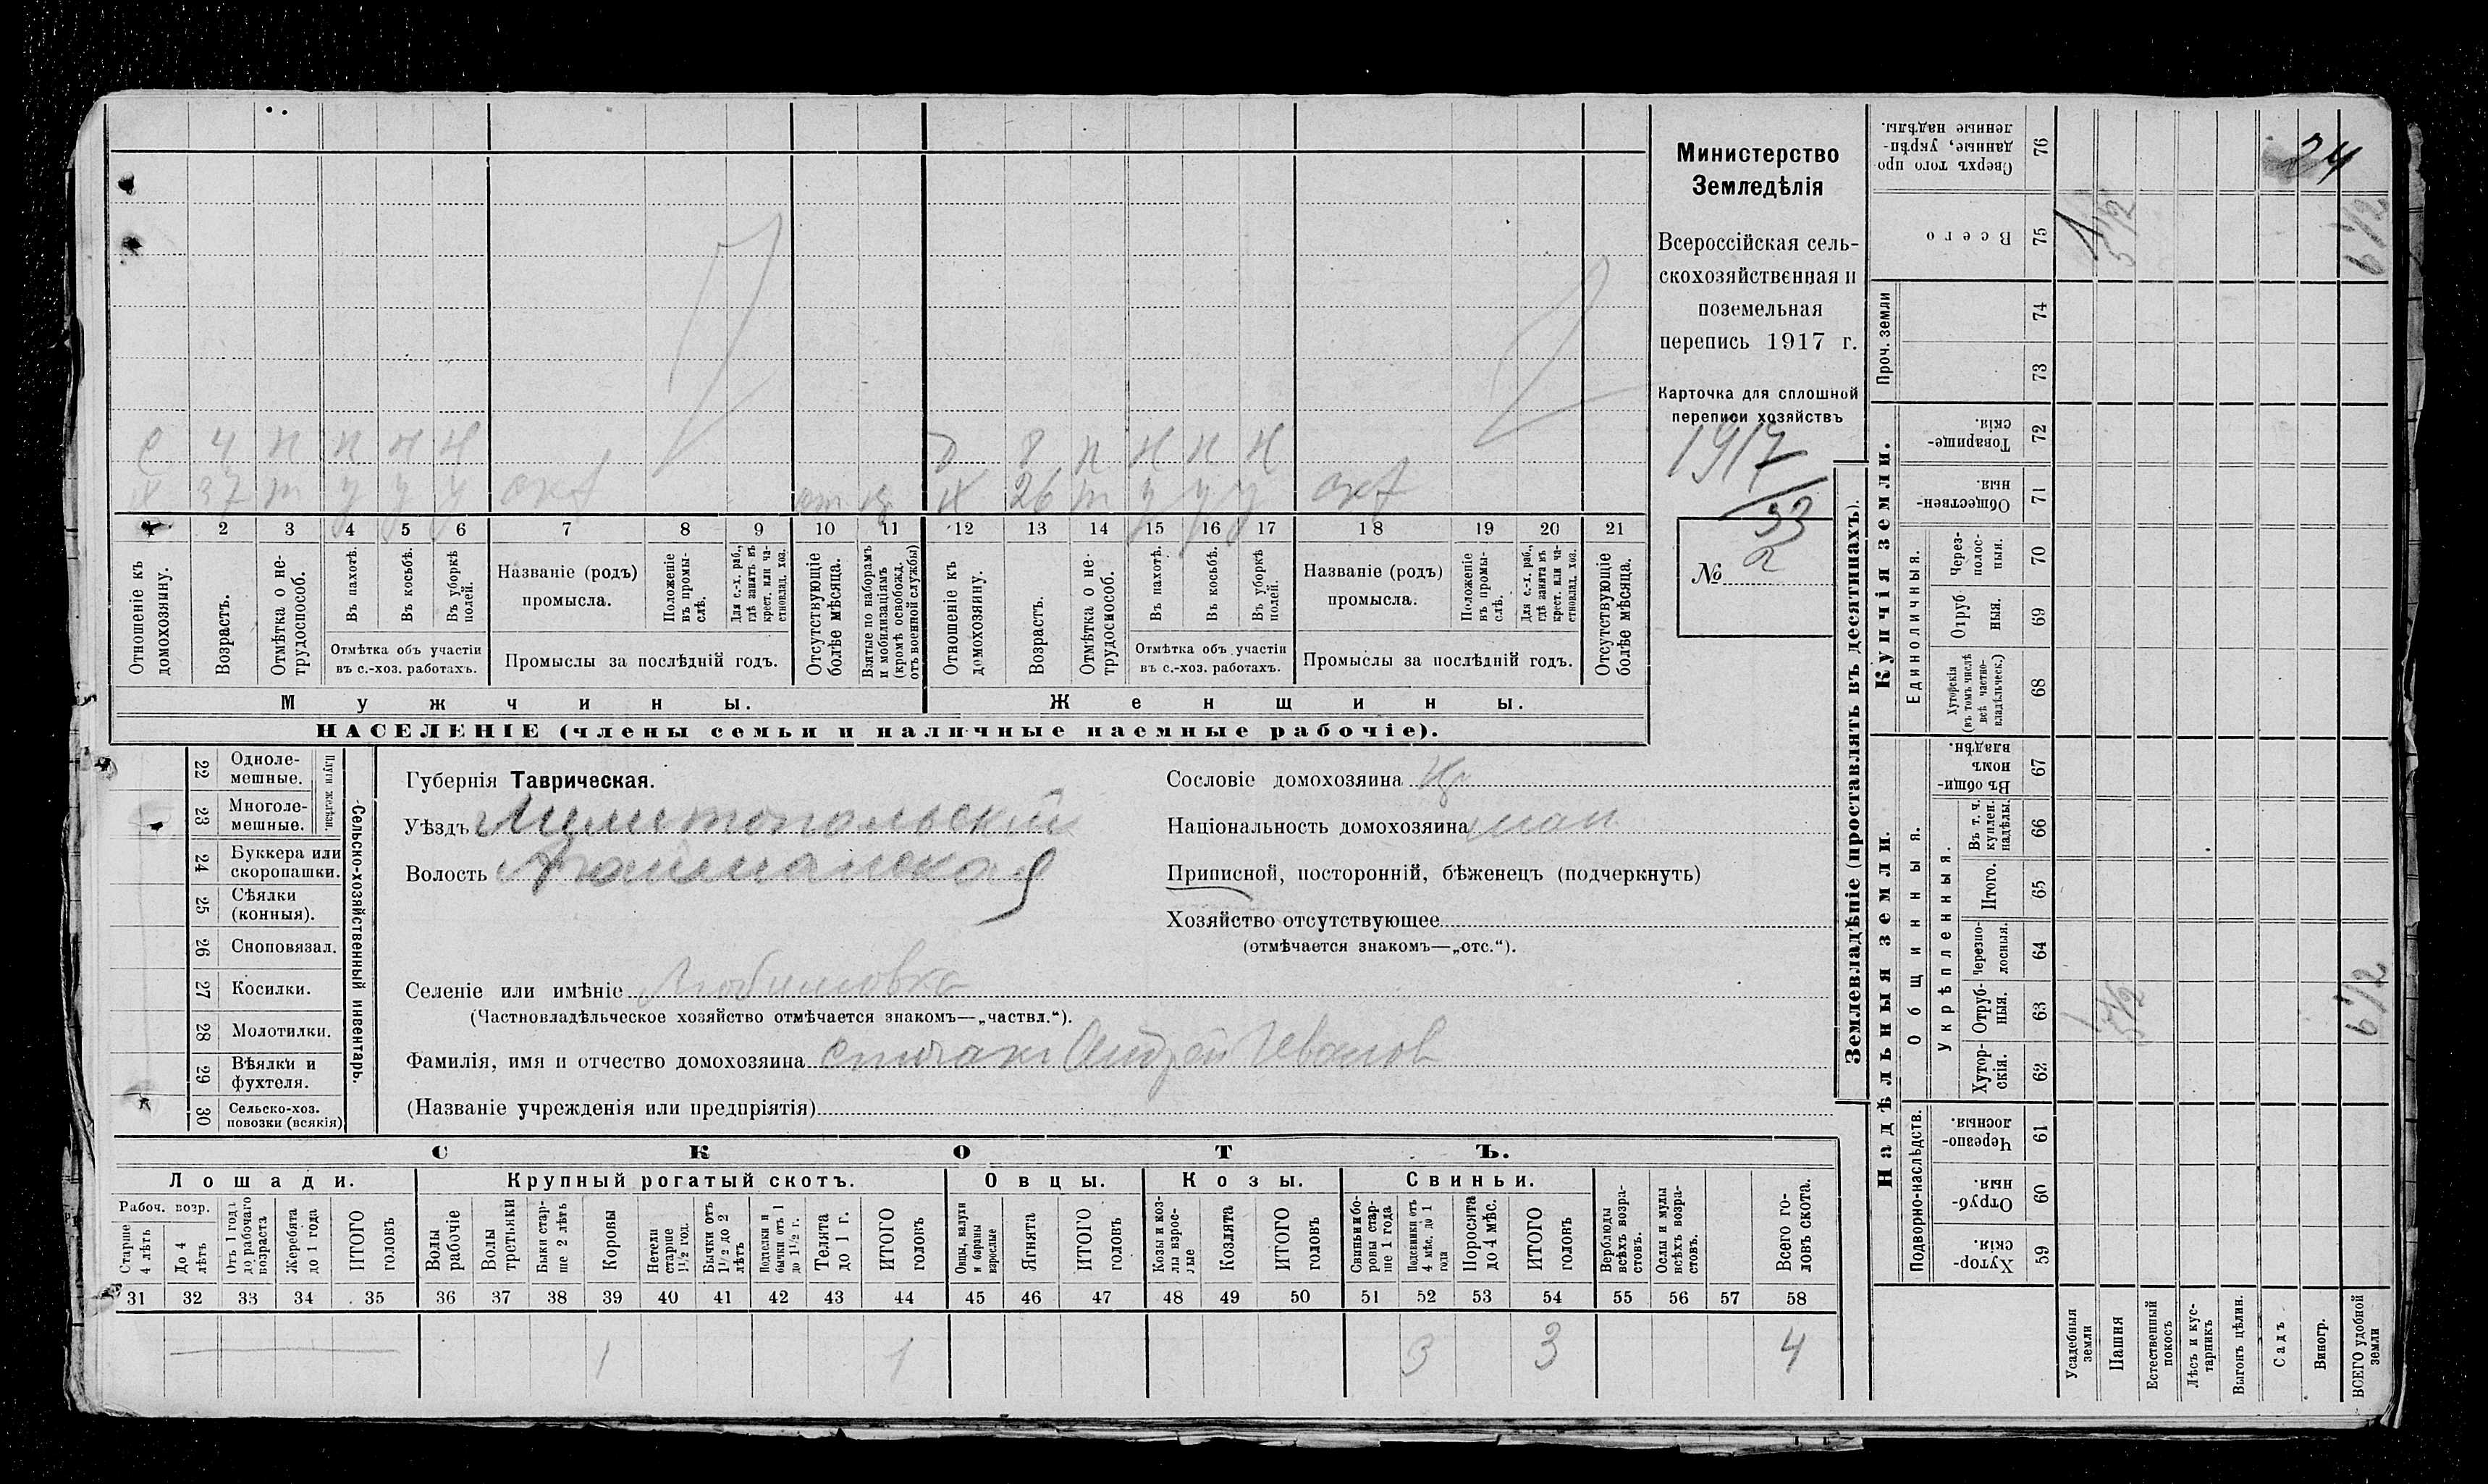 Министерство
Земледѣлія
Всероссійская сель-
скохозяйственная и
поземельная
перепись 1917 г.
Карточка для сплошной
переписи хозяйствъ
1917
33
№ 2
24
4
8
37 т у у у
26 т у у у
1 2 3 4 5 6 7 8 9 10 11 12 13 14 15 16 17 18 19 20 21
Отношеніе къ домохозяину.
Возрастъ.
Отмѣтка о не-трудоспособ.
Въ пахотѣ.
Въ косьбѣ.
Въ уборкѣ полей.
Отмѣтка объ участіи въ с.-хоз. работахъ.
Названіе (родъ) промысла.
Положеніе въ промы-слѣ.
Для с.-х. раб., гдѣ занятъ въ крест. или ча-стновлад. хоз.
Промыслы за послѣдній годъ.
Отсутствующіе болѣе мѣсяца.
Взятые по наборамъ и мобилизаціямъ (кромѣ освобожд. отъ военной службы)
Отношеніе къ домохозяину.
Возрастъ.
Отмѣтка о не-трудоспособ.
Въ пахотѣ.
Въ косьбѣ.
Въ уборкѣ полей.
Отмѣтка объ участіи въ с.-хоз. работахъ.
Названіе (родъ) промысла.
Положеніе въ промы-слѣ.
Для с.-х. раб., гдѣ занята въ крест. или ча-стновлад. хоз.
Промыслы за послѣдній годъ.
Отсутствующіе болѣе мѣсяца.
Мужчины. Женщины.
НАСЕЛЕНІЕ (члены семьи и наличные наемные рабочіе).
Сельско-хозяйственный инвентарь.
Плуги желѣзн.
22 Одноле-мешные.
23 Многоле-мешные.
24 Буккера или скоропашки.
25 Сѣялки (конныя).
26 Сноповязал.
27 Косилки.
28 Молотилки.
29 Вѣялки и фухтеля.
30 Сельско-хоз. повозки (всякія)
Губернія Таврическая.
Уѣздъ Мелитопольскій
Волость
Селеніе или имѣніе Любимовка
(Частновладѣльческое хозяйство отмѣчается знакомъ—„частвл.“).
Фамилія, имя и отчество домохозяина Андрей Иванов
(Названіе учрежденія или предпріятія)
Сословіе домохозяина
Національность домохозяина мал
Приписной, посторонній, бѣженецъ (подчеркнуть)
Хозяйство отсутствующее
(отмѣчается знакомъ—„отс.“).
СКОТЪ.
Лошади. Крупный рогатый скотъ. Овцы. Козы. Свиньи.
Рабоч. возр.
Старше 4 лѣтъ
До 4 лѣтъ
Отъ 1 года до рабочаго возраста
Жеребята до 1 года
ИТОГО головъ
Волы рабочіе
Волы третьяки
Быки стар-ше 2 лѣтъ
Коровы
Нетели старше 1½ год.
Бычки отъ 1½ до 2 лѣтъ
Подтелки и бычки отъ 1 до 1½ г.
Телята до 1 г.
ИТОГО головъ
Овцы, валухи и бараны взрослые
Ягнята
ИТОГО головъ
Козы и коз-лы взрос-лые
Козлята
ИТОГО головъ
Свиньи и бо-ровы стар-ше 1 года
Подсвинки отъ 4 мѣс. до 1 года
Поросята до 4 мѣс.
ИТОГО головъ
Верблюды всѣхъ возра-стовъ.
Ослы и мулы всѣхъ возра-стовъ.
Всего го-ловъ скота.
31 32 33 34 35 36 37 38 39 40 41 42 43 44 45 46 47 48 49 50 51 52 53 54 55 56 57 58
1 1 3 3 4
Землевладѣніе (проставлять въ десятинахъ).
Купчія земли.
Надѣльныя земли.
Сверхъ того про-данные, укрѣп-ленные надѣлы. 76
Всего 75 1 5½ 6½
Проч. земли 74
73
Товарище-скія. 72
Обществен-ныя. 71
Единоличныя.
Через-полос-ныя. 70
Отруб-ныя. 69
Хуторскія (въ томъ числѣ всѣ частно-владѣльческ.) 68
Общинныя.
Въ общи-номъ владѣн. 67
Укрѣпленныя.
Въ т. ч. куплен. надѣлы. 66
Итого. 65
Черезпо-лосныя. 64
Отруб-ныя. 63 1 5½ 6½
Хутор-скія. 62
Подворно-наслѣдств.
Черезпо-лосныя. 61
Отруб-ныя. 60
Хутор-скія. 59
Усадебныя земли
Пашня
Естественный покосъ
Лѣсъ и кус-тарникъ
Выгонъ цѣлин.
Садъ
Виногр.
ВСЕГО удобной земли